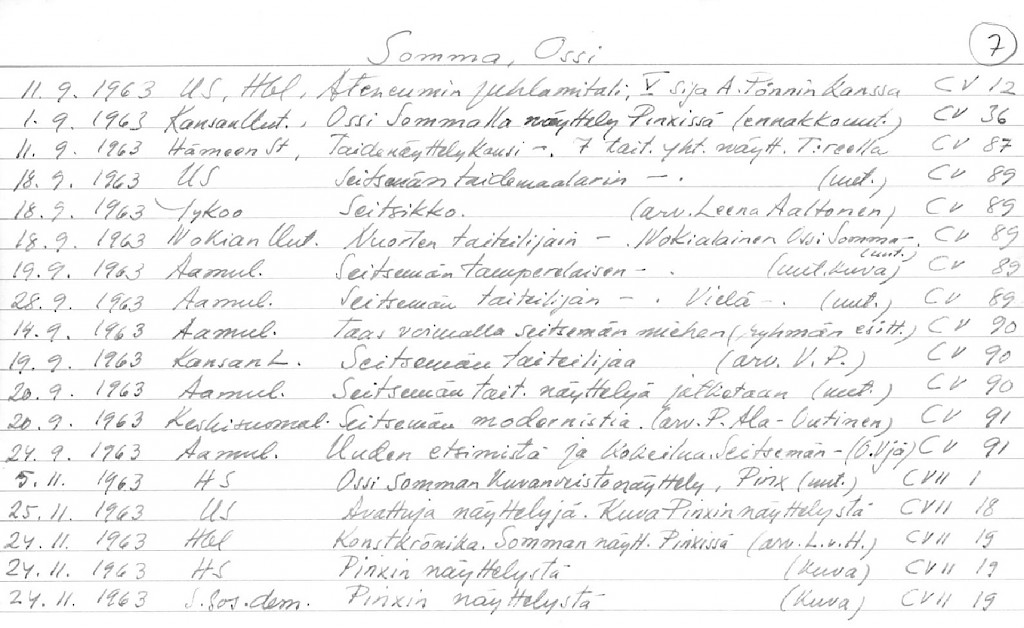 Somma, Ossi
7
11.9. 1963 US, Hbl, Ateneumin juhlamitali, V sija A. Tönnin kanssa CV 12
1.9. 1963 Kansan Uut., Ossi Sommalla näyttely Pinxissä (ennakkouut.) CV 36
11.9. 1963 Hämeen S:t, Taidenäyttelykausi -. 7 tait. yht. näytt. T:reella CV 87
18.9. 1963 US Seitsemän taidemaalarin -. (uut.) CV 89
18.9. 1963 Jykoo Seitsikko. (arv. Leena Aaltonen) CV 89
18.9. 1963 Nokian Uut. Nuorten taiteilijain -. Nokialainen Ossi Somma -. (uut.) CV 89
19.9. 1963 Aamul. Seitsemän tamperelaisen -. (uut. kuva) CV 89
28.9. 1963 Aamul. Seitsemän taiteilijan -. Vielä -. (uut.) CV 89
14.9. 1963 Aamul. Taas voimalla seitsemän miehen (ryhmän esitt.) CV 90
19.9. 1963 Kansan L. Seitsemän taiteilijaa (arv. V. P.) CV 90
20.9. 1963 Aamul. Seitsemän tait. näyttelyä jatketaan (uut.) CV 90
20.9. 1963 Keskisuomal. Seitsemän modernistia. (arv. P. Ala-Outinen) CV 91
24.9. 1963 Aamul. Uuden etsimistä ja kokeilua. Seitsemän - (O. Vjä) CV 91
5.11. 1963 HS Ossi Somman kuvanveistonäyttely, Pinx (uut.) CVII 1
25.11. 1963 US Avattuja näyttelyjä. Kuva Pinxin näyttelystä CVII 18
24.11. 1963 Hbl Konstkrönika. Somman näytt. Pinxissä (arv. L.v.H.) CVII 19
24.11. 1963 HS Pinxin näyttelystä (kuva) CVII 19
24.11. 1963 S.Sos.dem. Pinxin näyttelystä (kuva) CVII 19